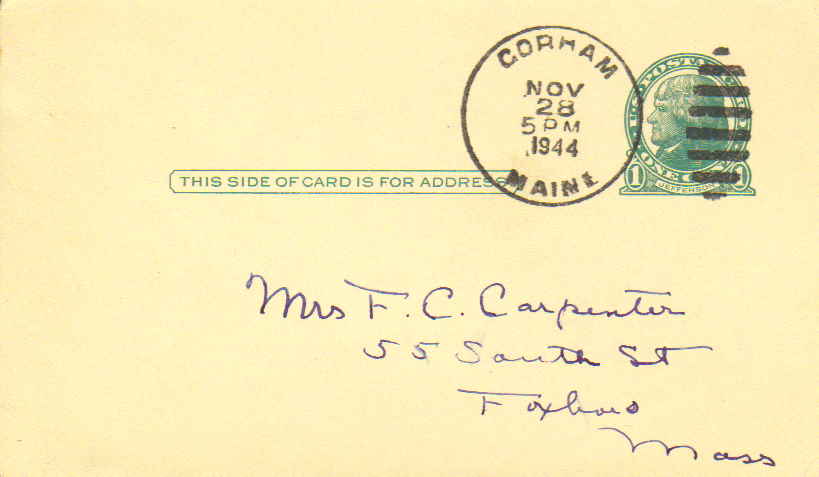 GORHAM
NOV
28
5 PM
1944
MAINE
THIS SIDE OF CARD IS FOR ADDRESS
1 JEFFERSON 1
Mrs F. C. Carpenter
55 South St
Foxboro
Mass